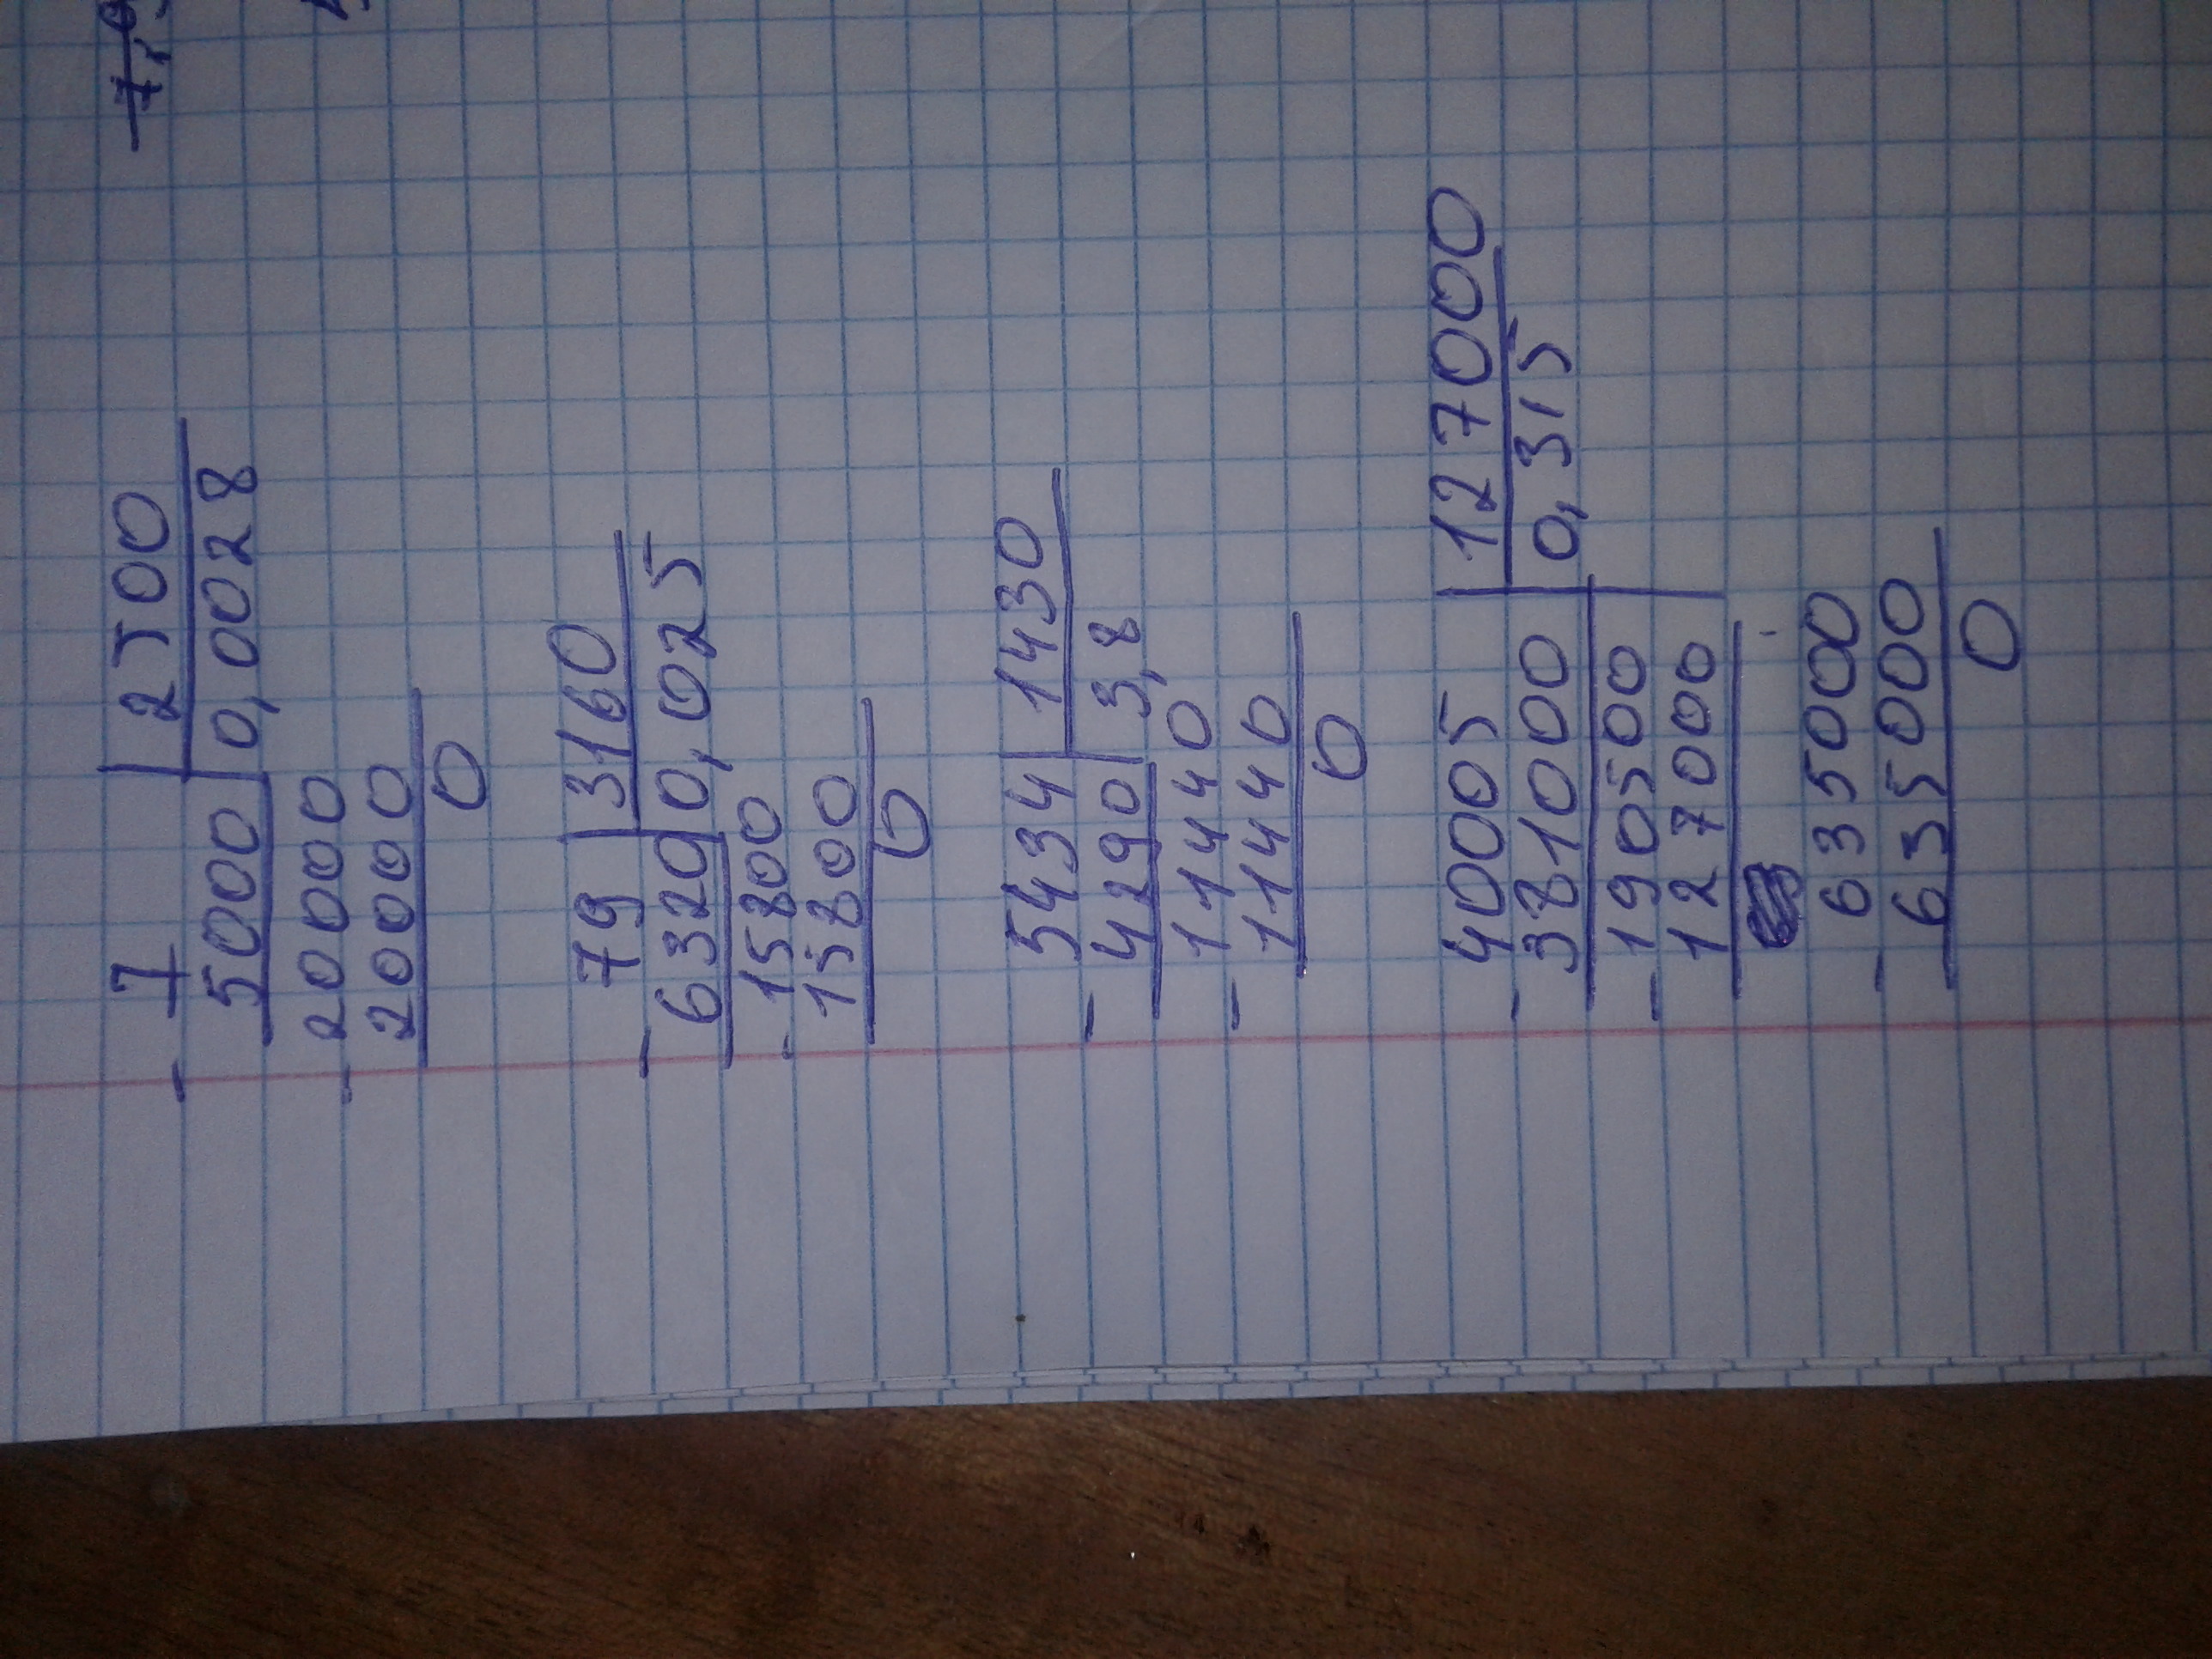 - 7 | 2500
5000 | 0,0028
- 20000
20000
0
- 79 | 3160
6320 | 0,025
- 15800
15800
0
5434 | 1430
- 4290 | 3,8
11440
- 11440
0
40005 | 127000
- 38100 0 | 0,315
190500
- 127000
635000
- 635000
0